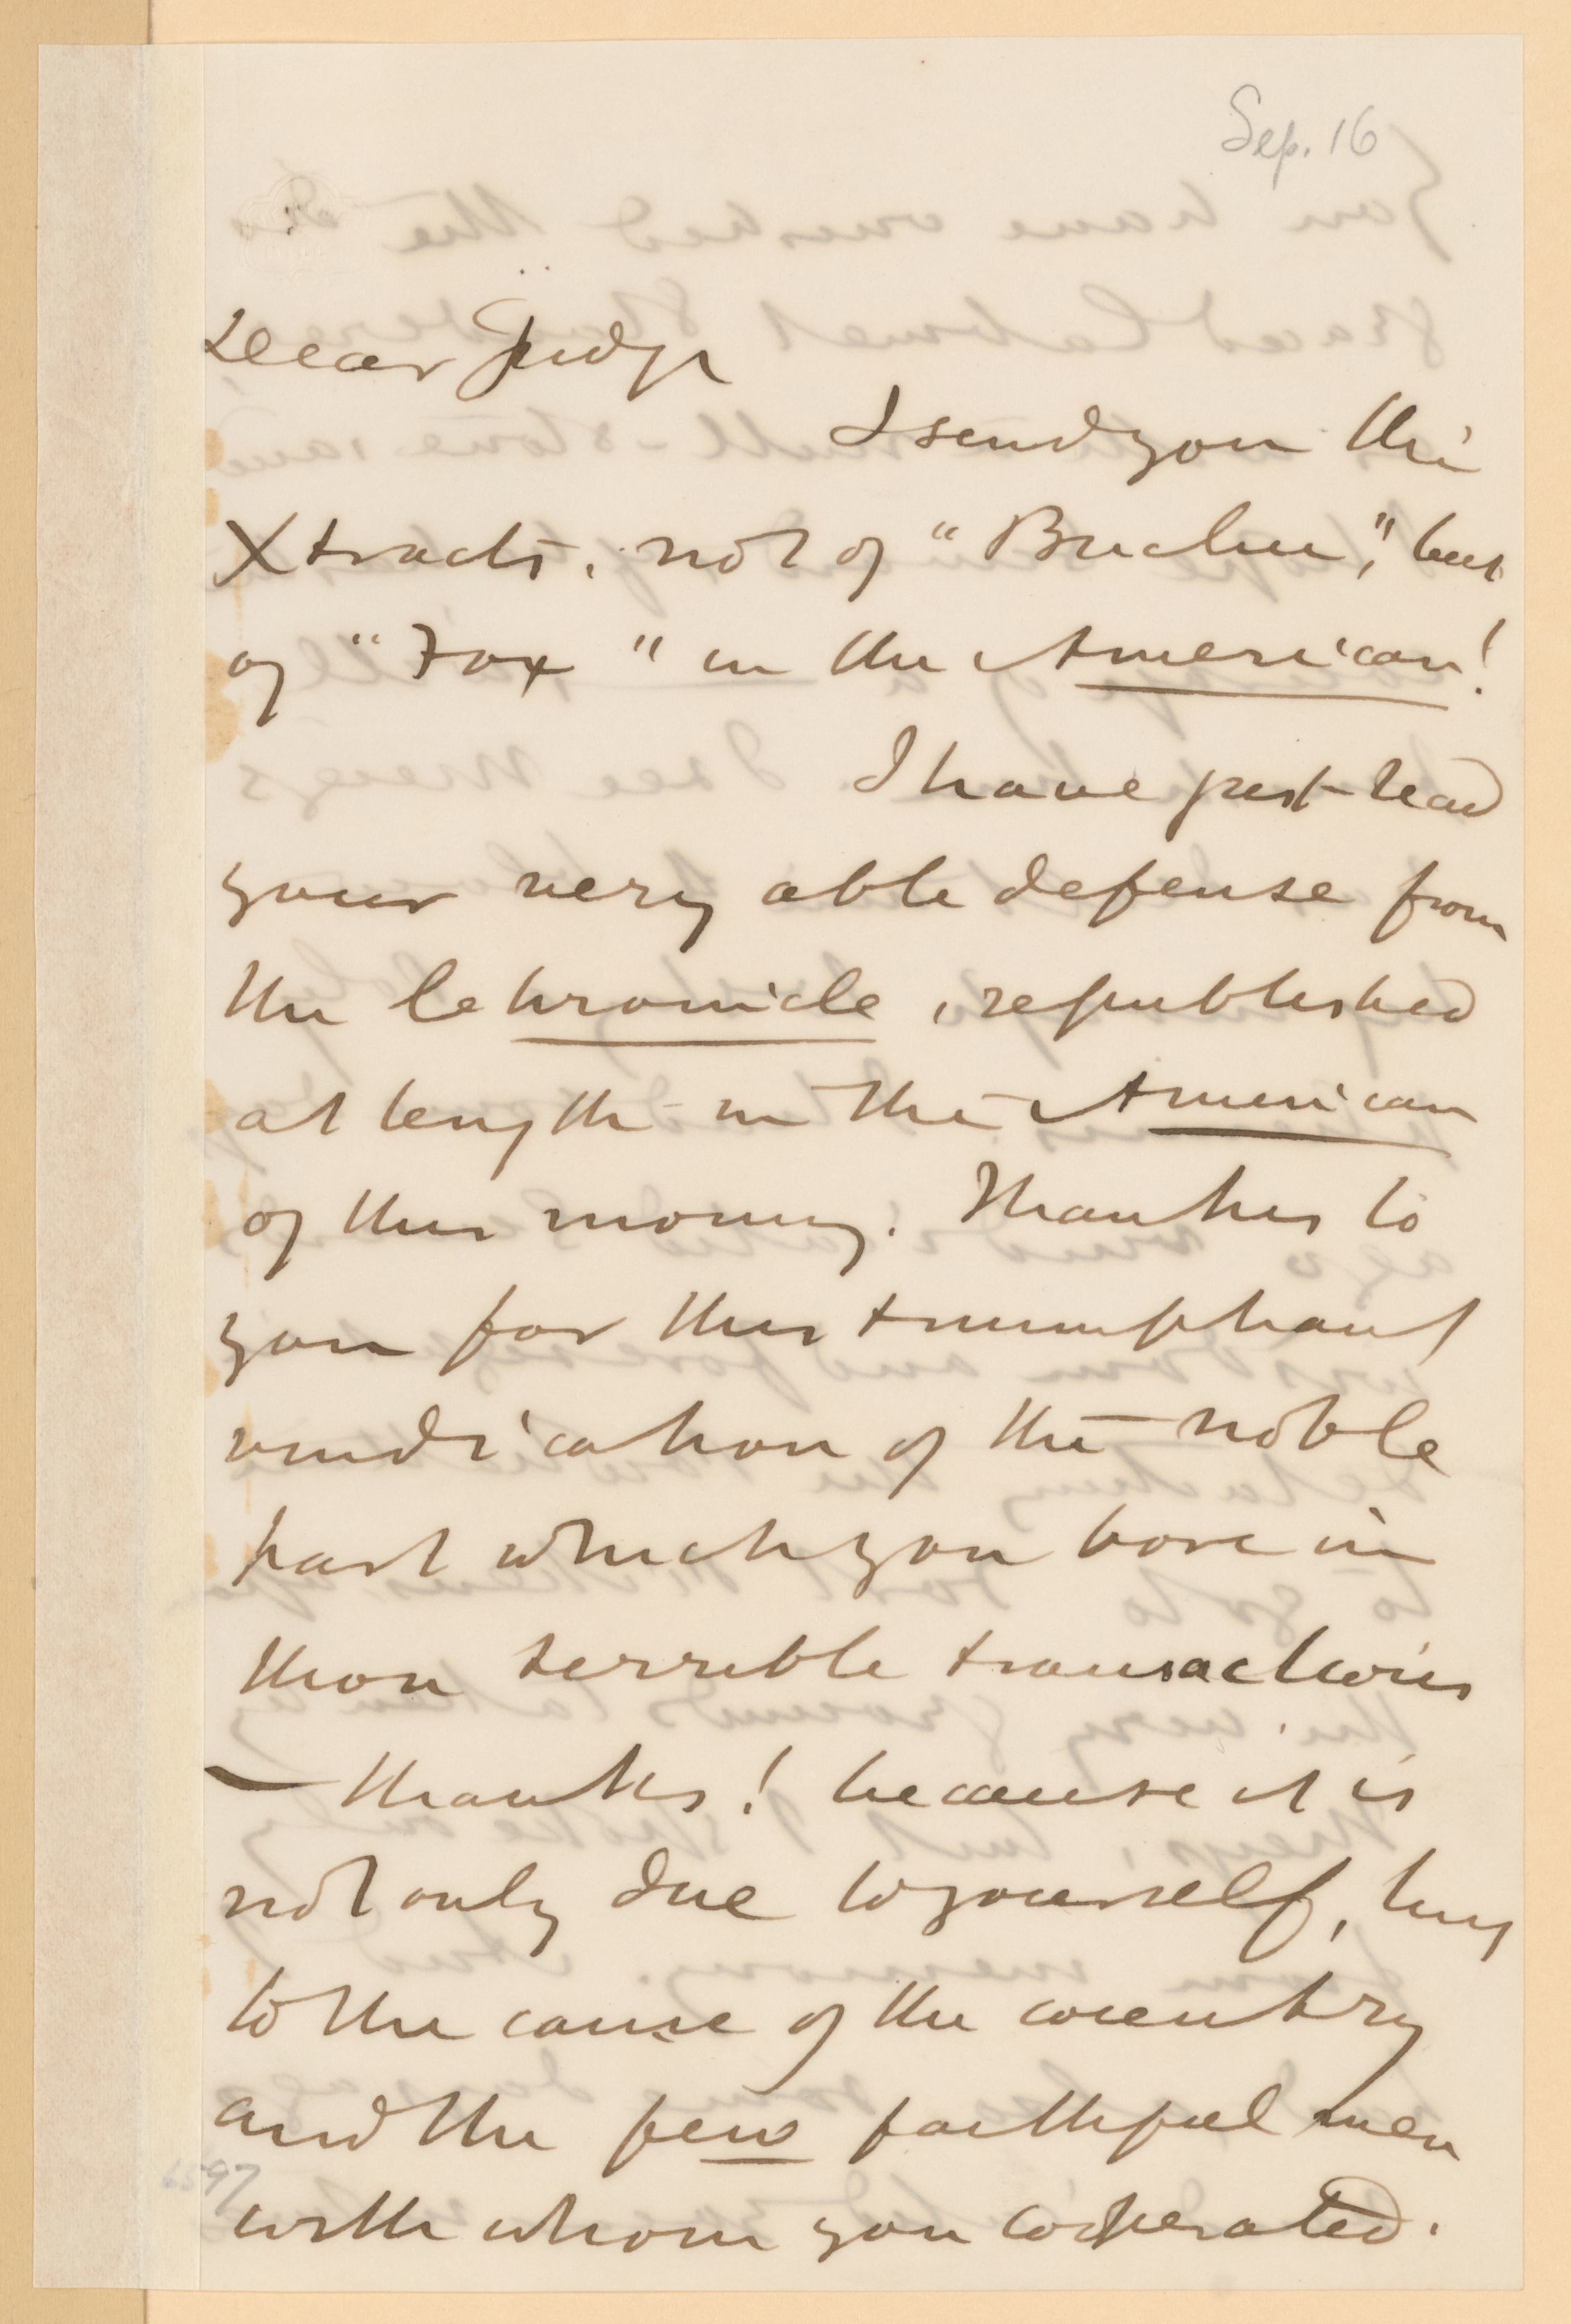 Sep. 16
Dear Judge
I send you the
Xtracts, not of "Buchu", but
of "Fox" in the American!
I have just read
your very able defense from
the Chronicle, republished
at length in the American
of this morning. Thanks to
you for this triumphant
vindication of the noble
part which you bore in
those terrible transactions
— thanks! because it is
not only due to yourself, but
to the cause of the country
and the few faithful men
with whom you coöperated.
6597